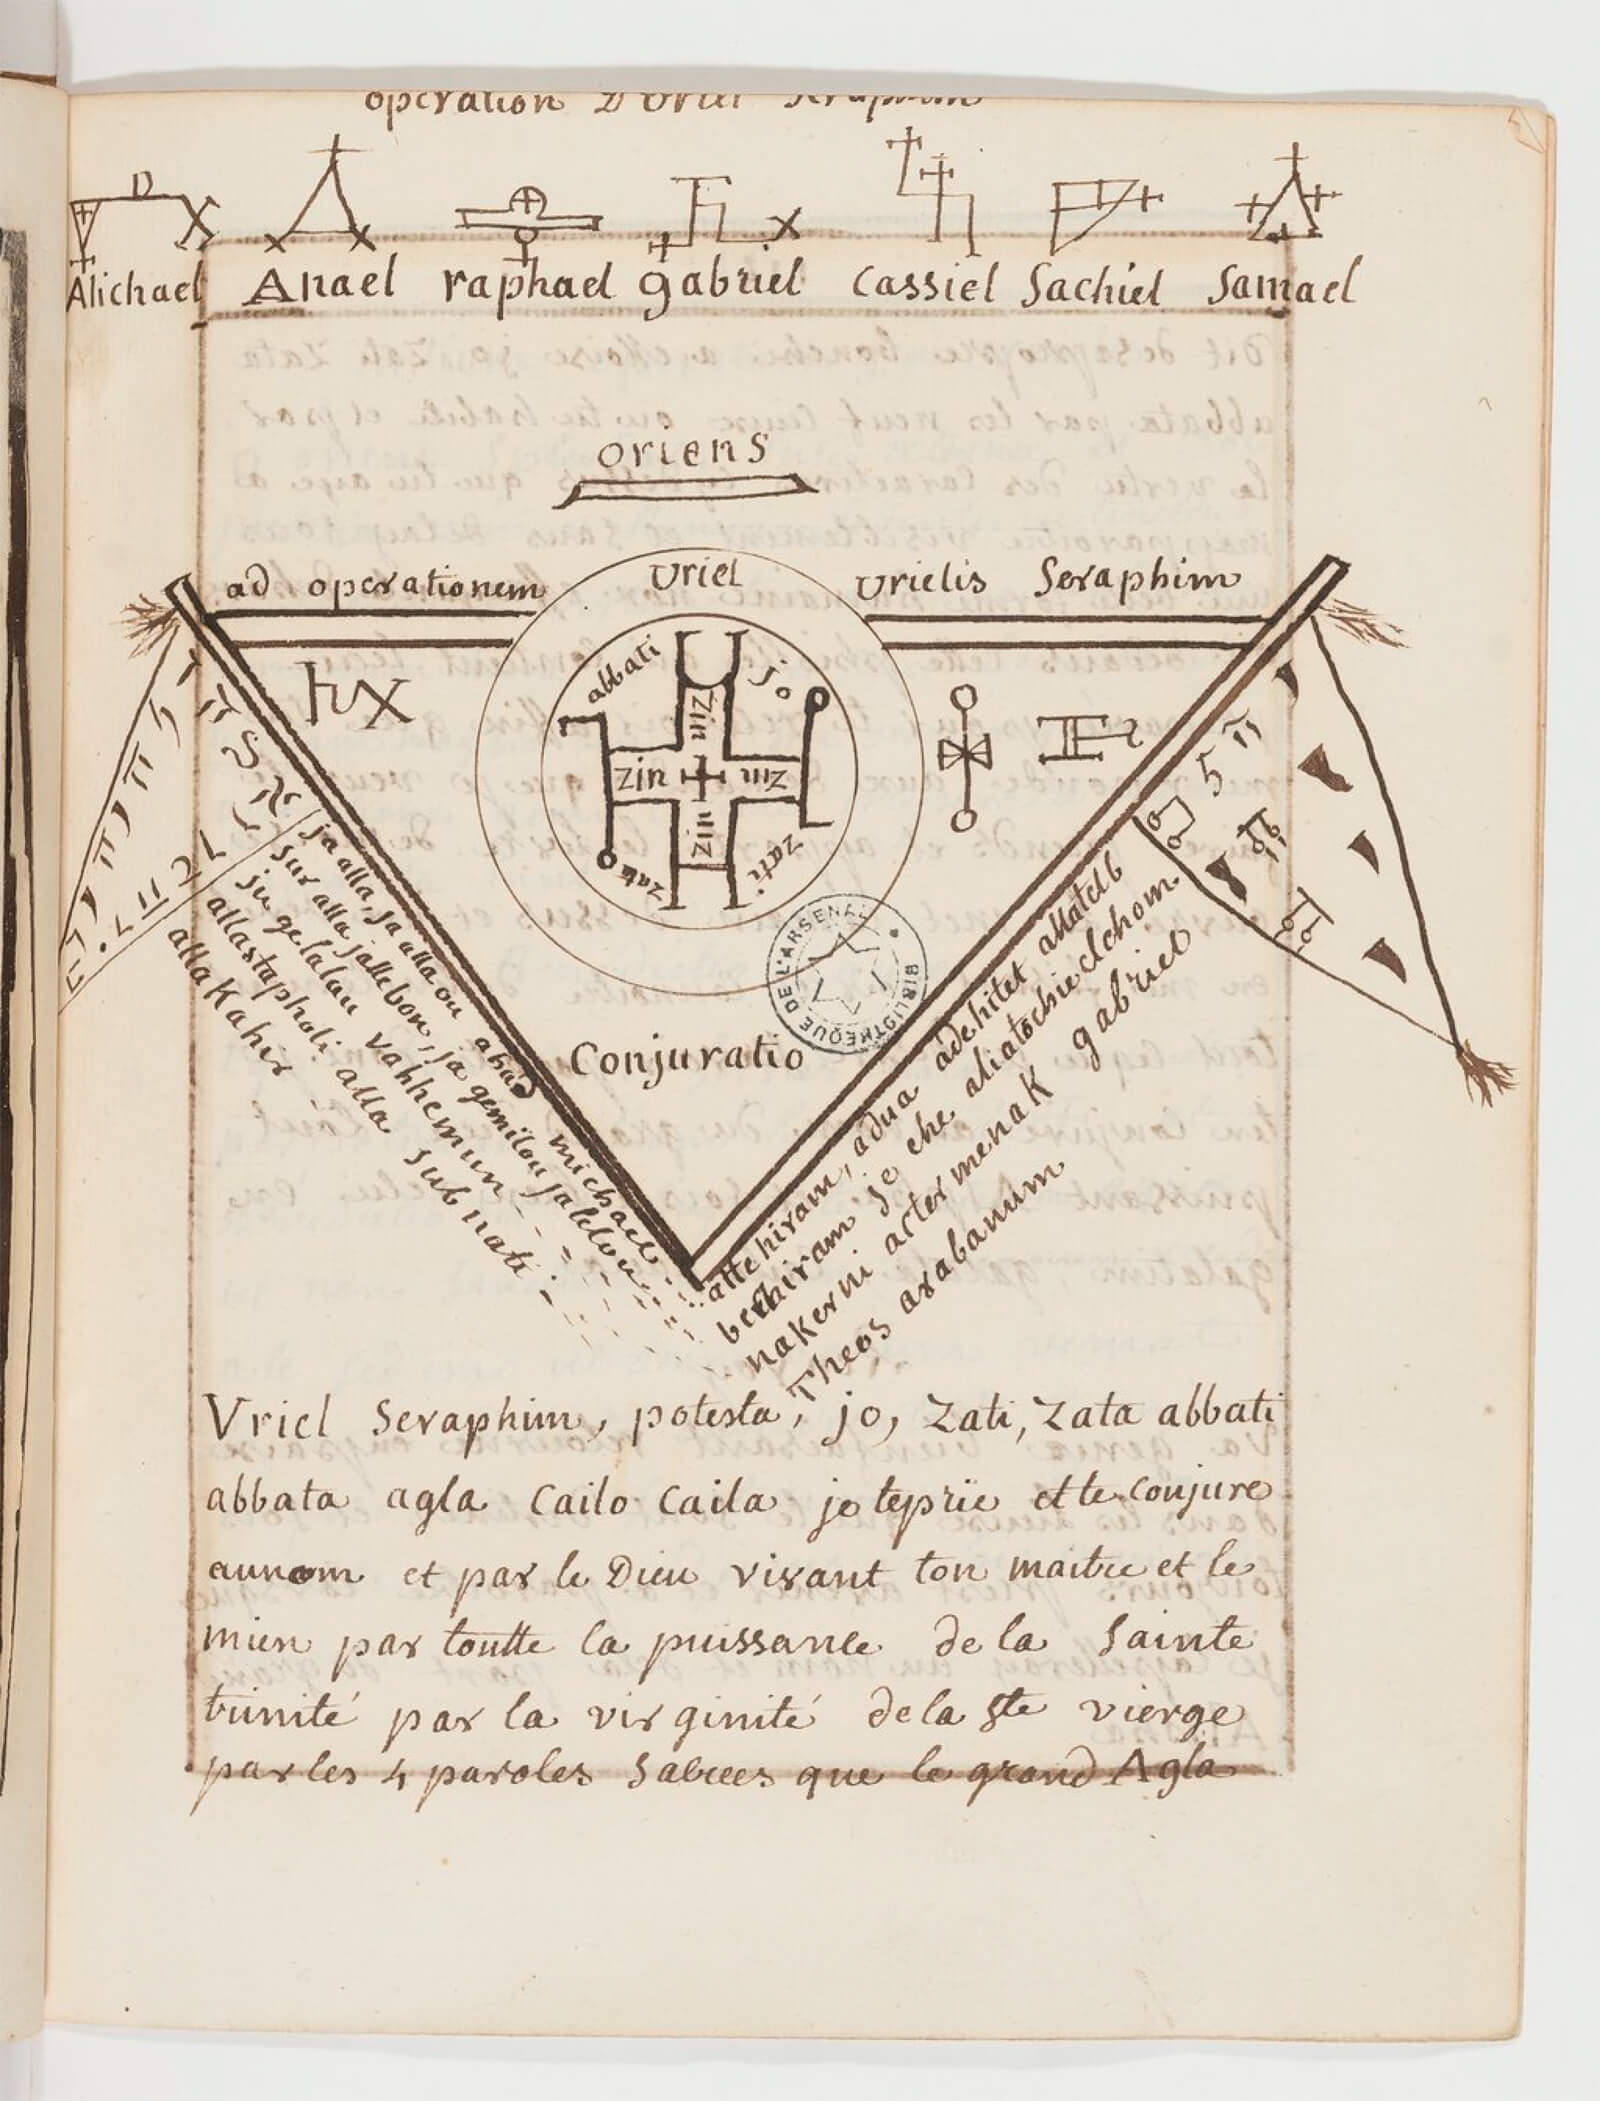 operation D Uriel Seraphim
Michael Anael raphael gabriel Cassiel Sachiel Samael
oriens
ad operationem Uriel Urielis Seraphim
abbati jo
zin
zin zin
zin
zata zati
BIBLIOTHEQUE DE L'ARSENAL
Conjuratio
ja alla, ja alla ou ahad michael
sur alla jallebon, ja gemilou jalelou
ju gelalau vahhemun
allastapholi alla sub nati
alla Kahir
atte hiram, adua adehitet allatelb
berhiram je che aliatochieelchom.
nakerni acter menak gabriel
Theos arabanum
Vriel Seraphim, potesta, jo, Zati, Zata abbati
abbata agla Cailo Caila je teprie et te conjure
aunom et par le Dieu vivant ton maitre et le
mien par toutte la puissance de la Sainte
trinité par la virginité de la Ste vierge
par les 4 paroles Sacrees que le grand Agla